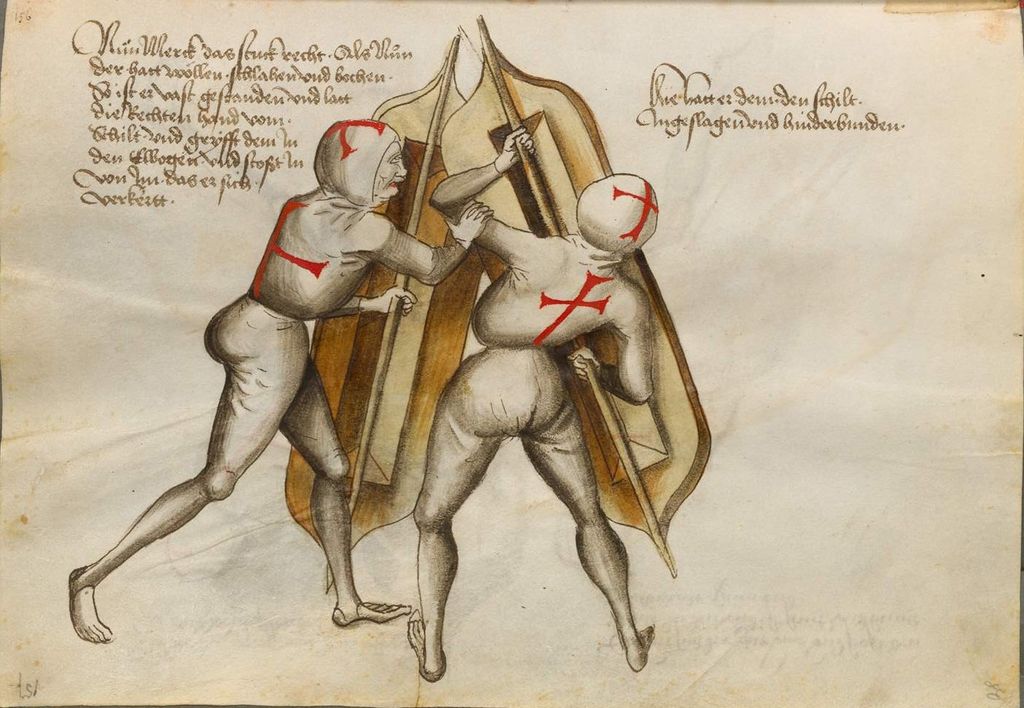 156
Nün Merck das stuck recht · Als Nün
der hatt wöllen · schlahen und bochen ·
So ist er vast gestanden und latt
die Rechten hand vom ·
Schilt und gryfft dem in
den Elbogen und stosst in
von im · das er sich ·
verkertt ·
hie hatt er dem · den schilt ·
Ingeslagen und hinderbunden ·